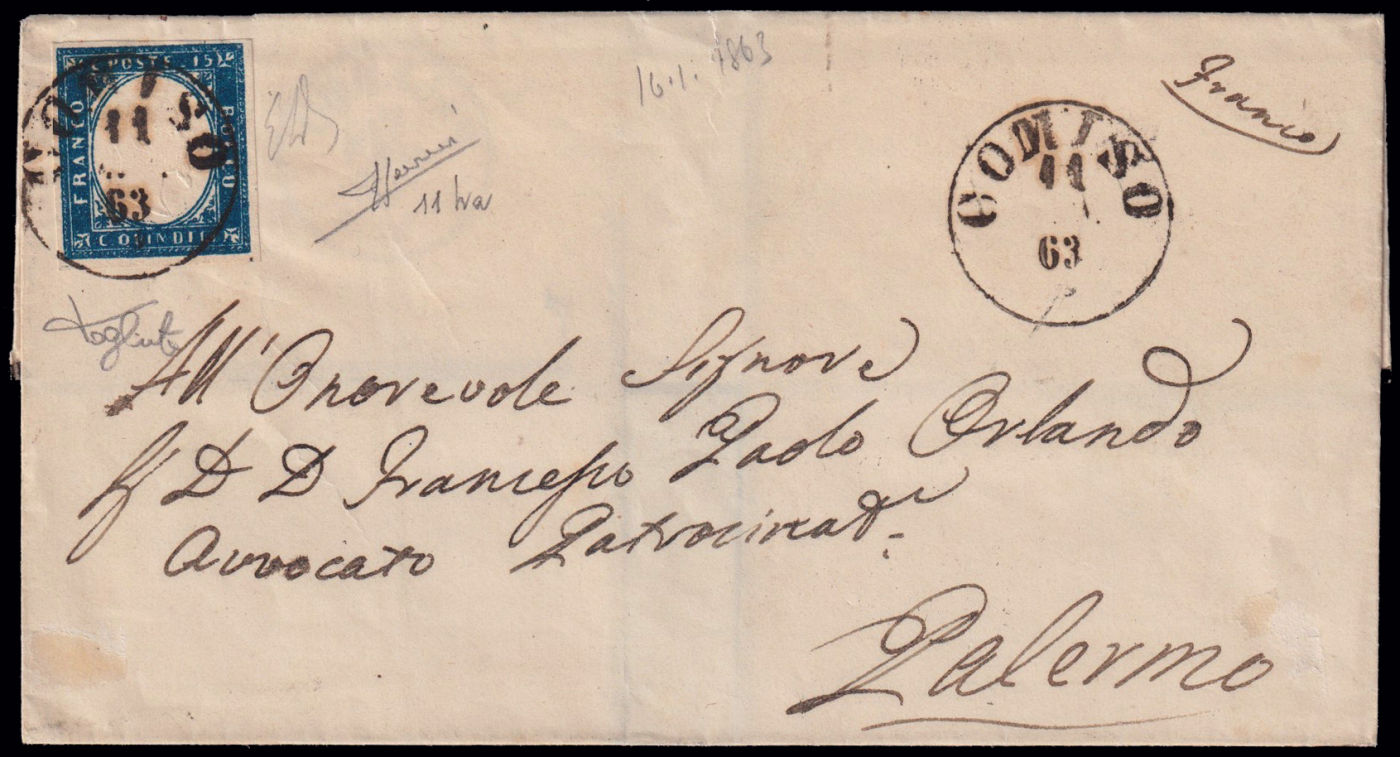 C. POSTE. 15
FRANCO
BOLLO
C. QUINDICI
COMISO
11
63
16.1.1863
11 
COMISO
11
63
Franco
All' Onorevole Signore
D D Francesco Paolo Orlando
Avvocato Patrocinat.e
Palermo